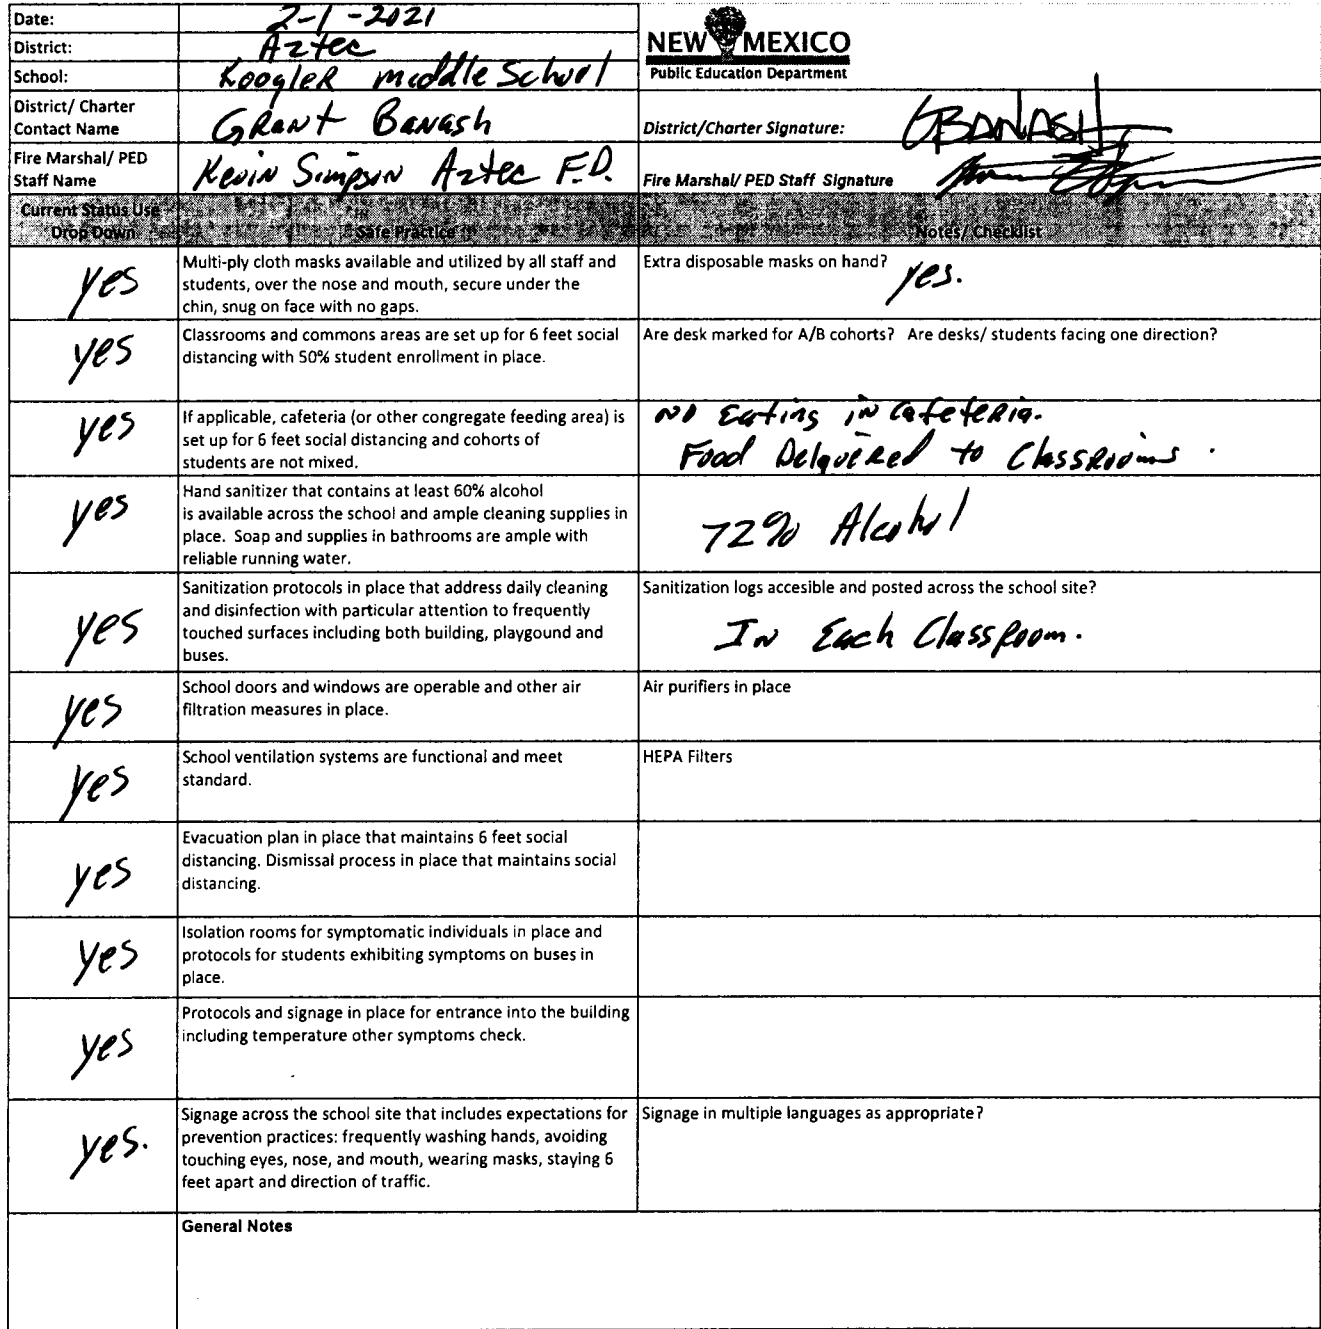 Date: 2-1-2021
District: Aztec
School: Koogler middle School
NEW MEXICO
Public Education Department
District/ Charter
Contact Name
Grant Banash
District/Charter Signature: GBANASH
Fire Marshal/ PED
Staff Name
Kevin Simpson Aztec F.D.
Fire Marshal/ PED Staff Signature
Current Status Use
Drop Down
Safe Practice
Notes/ Checklist
yes
Multi-ply cloth masks available and utilized by all staff and
students, over the nose and mouth, secure under the
chin, snug on face with no gaps.
Extra disposable masks on hand? yes.
yes
Classrooms and commons areas are set up for 6 feet social
distancing with 50% student enrollment in place.
Are desk marked for A/B cohorts? Are desks/ students facing one direction?
yes
If applicable, cafeteria (or other congregate feeding area) is
set up for 6 feet social distancing and cohorts of
students are not mixed.
NO Eating in Cafeteria.
Food Delqvered to Classrooms.
yes
Hand sanitizer that contains at least 60% alcohol
is available across the school and ample cleaning supplies in
place. Soap and supplies in bathrooms are ample with
reliable running water.
72% Alcohol
yes
Sanitization protocols in place that address daily cleaning
and disinfection with particular attention to frequently
touched surfaces including both building, playgound and
buses.
Sanitization logs accesible and posted across the school site?
In Each Classroom.
yes
School doors and windows are operable and other air
filtration measures in place.
Air purifiers in place
yes
School ventilation systems are functional and meet
standard.
HEPA Filters
yes
Evacuation plan in place that maintains 6 feet social
distancing. Dismissal process in place that maintains social
distancing.
yes
Isolation rooms for symptomatic individuals in place and
protocols for students exhibiting symptoms on buses in
place.
yes
Protocols and signage in place for entrance into the building
including temperature other symptoms check.
yes.
Signage across the school site that includes expectations for
prevention practices: frequently washing hands, avoiding
touching eyes, nose, and mouth, wearing masks, staying 6
feet apart and direction of traffic.
Signage in multiple languages as appropriate?
General Notes